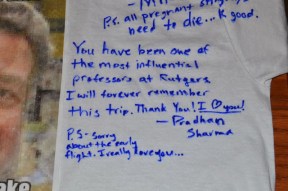 P.S. all pregnant
need to die... K good.
You have been one of
the most influential
professors at Rutgers
I will forever remember
this trip. Thank You! I ♥ you!
- Pradhan
Sharma
P.S - Sorry
about the early
flight. I really love you...
oke